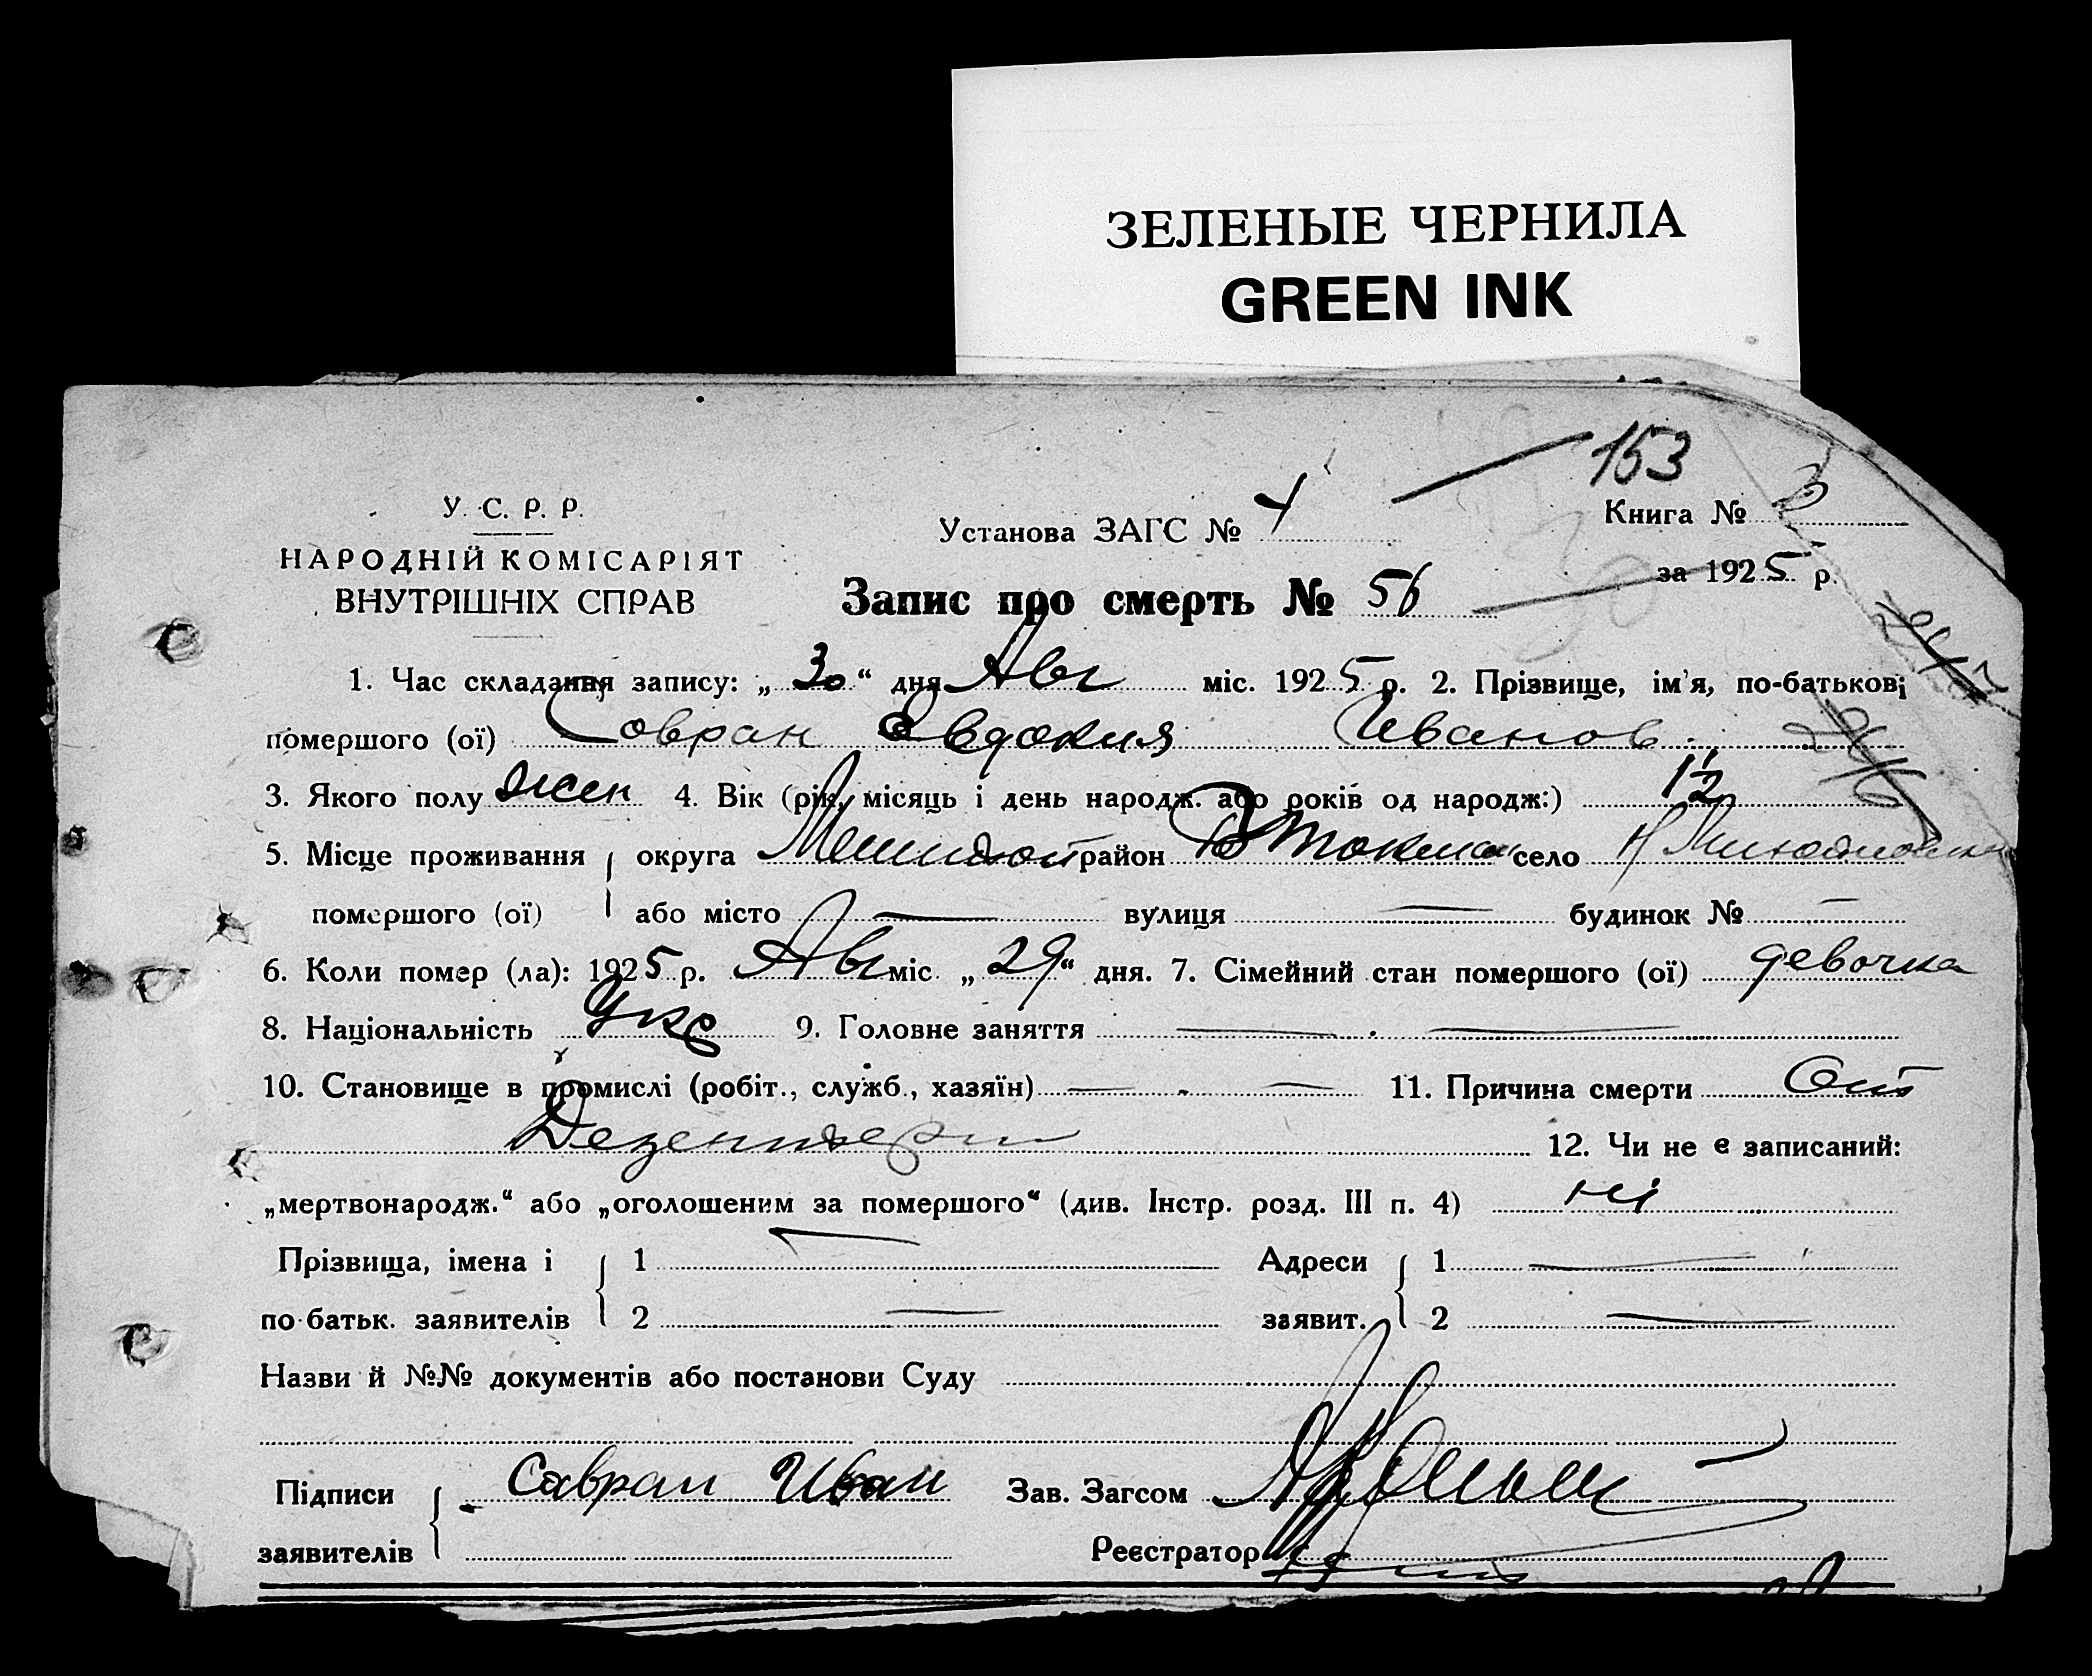 ЗЕЛЕНЫЕ ЧЕРНИЛА
GREEN INK
153
У. С. Р. Р.
НАРОДНІЙ КОМІСАРІЯТ
ВНУТРІШНІХ СПРАВ
Установа ЗАГС № 4
Книга № 3
за 1925 р.
Запис про смерть № 56
1. Час складання запису: „30“ дня Авг міс. 1925 р. 2. Прізвище, ім'я, по-батькові
помершого (ої) Совран Евдокия Иванов.
3. Якого полу жен 4. Вік (рік, місяць і день народж. або років од народж:) 1½
5. Місце проживання округа район Б Токмак село Н Михайловка
помершого (ої) або місто — вулиця — будинок № —
6. Коли помер (ла): 1925 р. Авг міс. „29“ дня. 7. Сімейний стан помершого (ої) девочка
8. Національність Укр 9. Головне заняття — . —
10. Становище в промислі (робіт., служб., хазяїн) — . — 11. Причина смерти От
Дезентерии 12. Чи не є записаний:
„мертвонародж.“ або „оголошеним за помершого“ (див. Інстр. розд. III п. 4) ні
Прізвища, імена і 1 — Адреси 1 —
по батьк. заявителів 2 — заявит. 2 —
Назви й №№ документів або постанови Суду
Підписи Савран Иван Зав. Загсом
заявителів Реєстратор